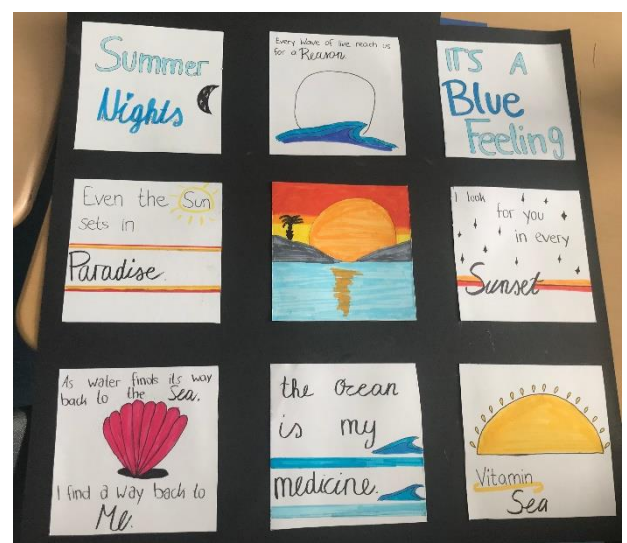 Summer
Nights
Every Wave of live reach us
for a Reason
IT'S A
Blue
Feeling
Even the Sun
sets in
Paradise.
I look
for you
in every
Sunset
As water finds its way
back to the Sea.
I find a way back to
Me.
the Ocean
is my
medicine.
Vitamin
Sea